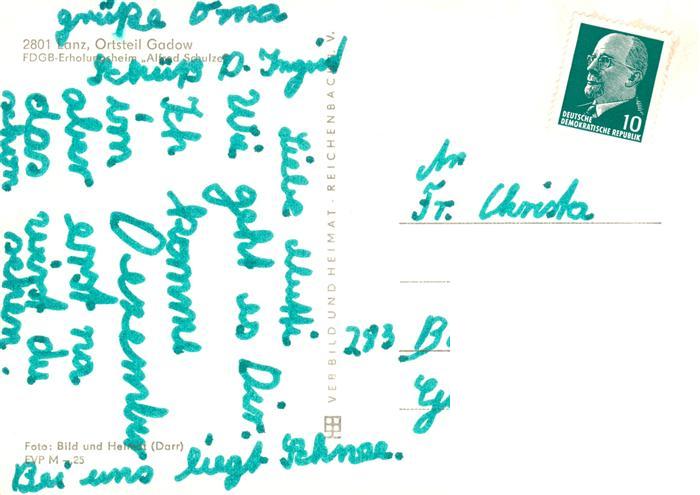 grüße Oma
2801 Lanz, Ortsteil Gadow
FDGB-Erholungsheim „Alfred Schulze
Tschüß D. Ingrid
Liebe Mutti.
Wie geht es Dir
Ich komme
im Dezember
aber erst na
das wirst du
schon
Bei uns liegt Schnee.
Foto: Bild und Heimat (Darr)
EVP M – 25
VERBILDUNDHEIMAT · REICHENBACH i. V.
10
DEUTSCHE
DEMOKRATISCHE REPUBLIK
An
Fr. Christa
283 B